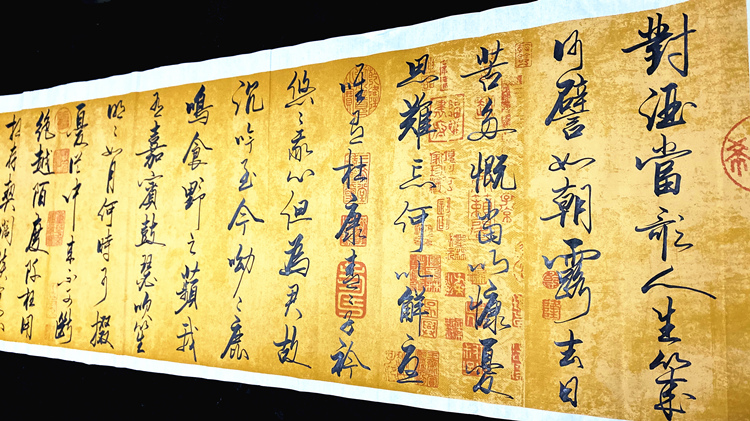 對酒當歌人生幾
何譬如朝露去日
苦多慨當以慷憂
思難忘何以解憂
唯有杜康青々子衿
悠々我心但為君故
沉吟至今呦々鹿
鳴食野之蘋我
有嘉賓鼓瑟吹笙
明々如月何時可掇
憂從中來不可斷
絕越陌度阡枉用
相存契闊談